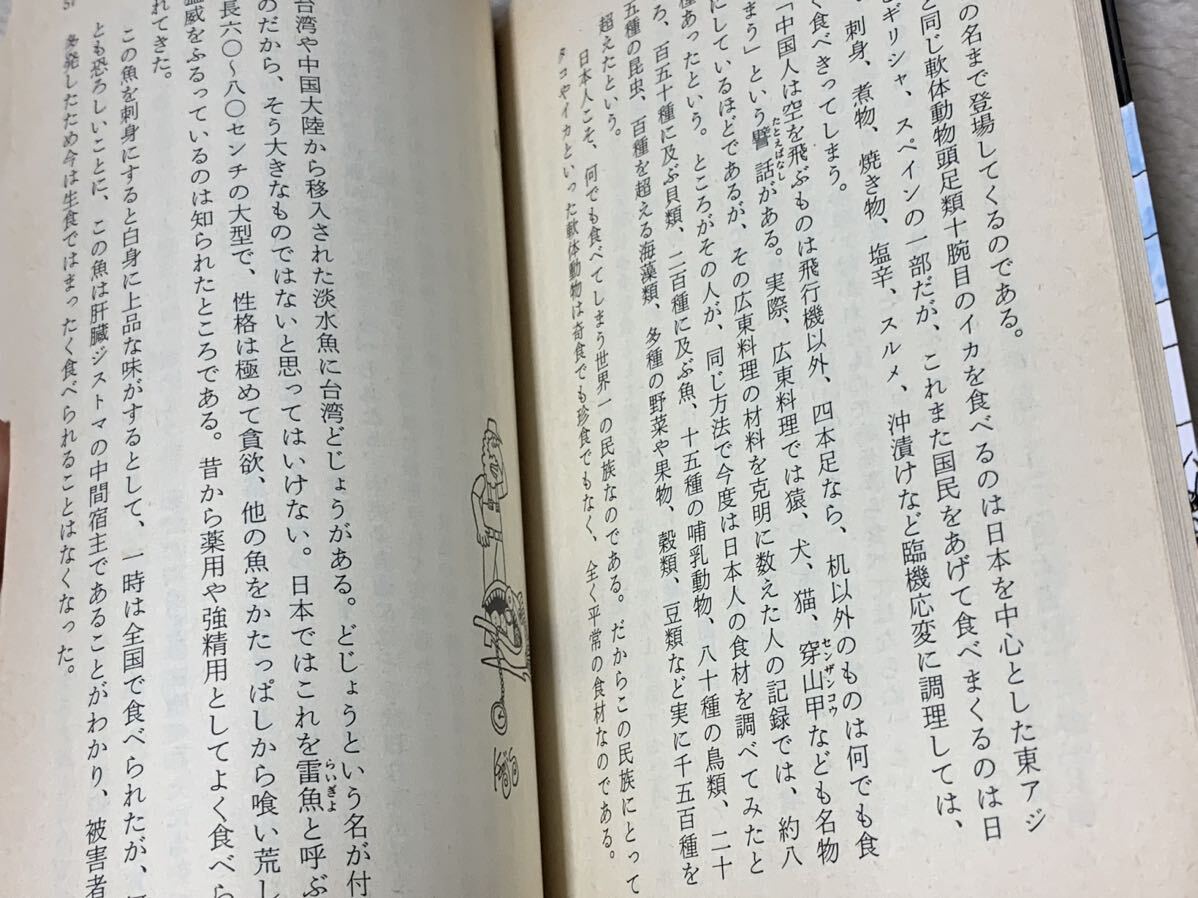 の名まで登場してくるのである。
と同じ軟体動物頭足類十腕目のイカを食べるのは日本を中心とした東アジ
ギリシャ、スペインの一部だが、これまた国民をあげて食べまくるのは日
刺身、煮物、焼き物、塩辛、スルメ、沖漬けなど臨機応変に調理しては、
く食べきってしまう。
「中国人は空を飛ぶものは飛行機以外、四本足なら、机以外のものは何でも食
まう」という譬話がある。実際、広東料理では猿、犬、猫、穿山甲なども名物
たとえばなし
センザンコウ
にしているほどであるが、その広東料理の材料を克明に数えた人の記録では、約八
種あったという。ところがその人が、同じ方法で今度は日本人の食材を調べてみたと
ろ、百五十種に及ぶ貝類、二百種に及ぶ魚、十五種の哺乳動物、八十種の鳥類、二十
五種の昆虫、百種を超える海藻類、多種の野菜や果物、穀類、豆類など実に千五百種を
超えたという。
日本人こそ、何でも食べてしまう世界一の民族なのである。だからこの民族にとって
タコやイカといった軟体動物は奇食でも珍食でもなく、全く平常の食材なのである。
台湾や中国大陸から移入された淡水魚に台湾どじょうがある。どじょうという名が付
のだから、そう大きなものではないと思ってはいけない。日本ではこれを雷魚と呼ぶ
らいぎよ
長六〇〜八〇センチの大型で、性格は極めて貪欲、他の魚をかたっぱしから喰い荒し
猛威をふるっているのは知られたところである。昔から薬用や強精用としてよく食べら
れてきた。
この魚を刺身にすると白身に上品な味がするとして、一時は全国で食べられたが、
とも恐ろしいことに、この魚は肝臓ジストマの中間宿主であることがわかり、被害者
多発したため今は生食ではまったく食べられることはなくなった。
51